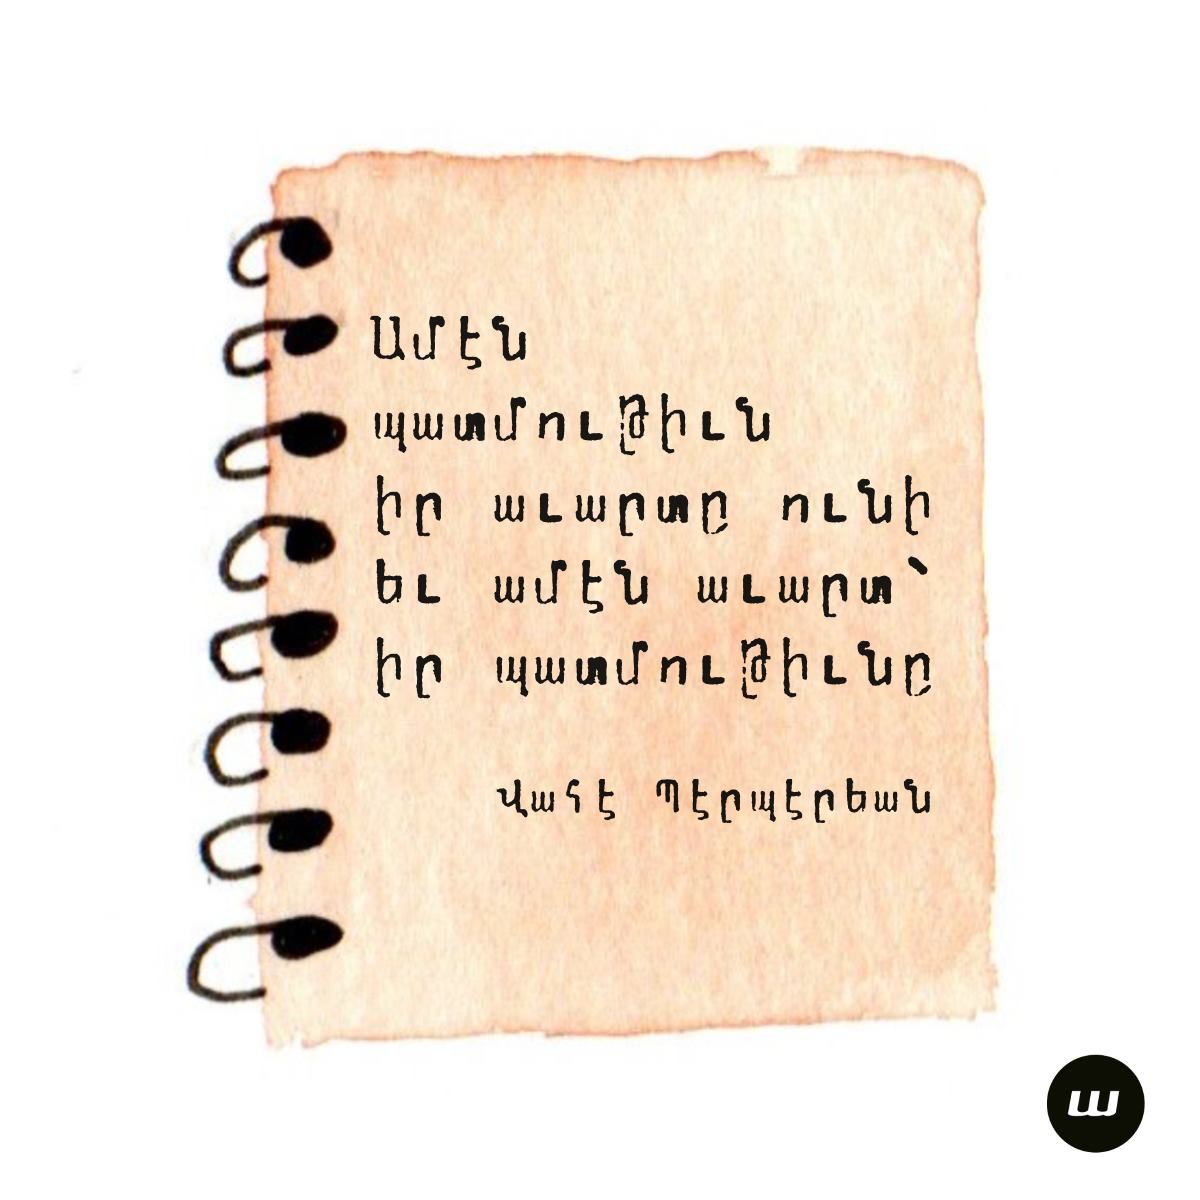 Ամէն
պատմութիւն
իր աւարտը ունի
եւ ամէն աւարտ՝
իր պատմութիւնը
Վահէ Պէրպէրեան
ա